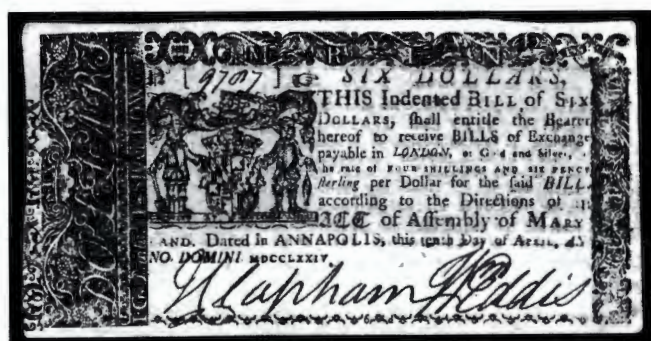 MARYLAND
Nº [9787] SIX DOLLARS,
THIS Indented BILL of SIX
DOLLARS, ſhall entitle the Bearer
hereof to receive BILLS of Exchange
payable in LONDON, or Gold and Silver,
the rate of FOUR SHILLINGS AND SIX PENCE
ſterling per Dollar for the ſaid BILL,
according to the Directions of
ACT of Aſſembly of MARY
LAND. Dated In ANNAPOLIS, this tenth Day of APRIL,
NO. DOMINI MDCCLXXIV
J Clapham W Eddis